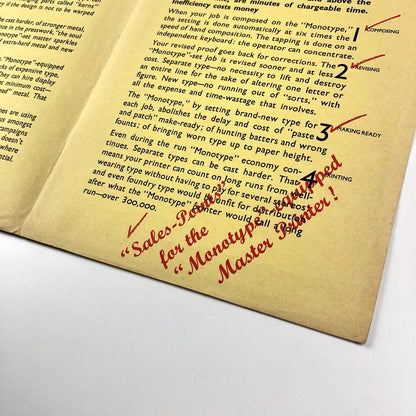 ging parts called "kerns"
if the design is not to be warped
cast harder, of stronger metal,
ce in the presswork, "the soul
otype"-set matter sparkles
of extra-hard metal and new
"Monotype"-equipped
cks of expensive type.
They can hire display
he minimum cost of
lead" metal. That
pes are using
mongst
ampaigns
doesn't
where
ial.
above the
inefficiency costs money, are minutes of chargeable time.
When your job is composed on the "Monotype,"
the setting is done automatically at six times the
speed of hand composition. The tapping is done on an
independent keyboard: the operator can concentrate.
1 COMPOSING
Your revised proof goes back for corrections. The
"Monotype"-set job is revised sooner and at less
cost. Separate type—no necessity to lift and destroy
an entire line for the sake of altering one letter or
figure. New type—no running out of "sorts," with
all the expense and time-wastage that involves.
2 REVISING
The "Monotype," by setting brand-new type for
each job, abolishes the delay and cost of "paste
and patch" make-ready; of hunting batters and wrong
founts; of bringing worn type up to paper height.
3 MAKING READY
Even during the run "Monotype" economy con-
tinues. Separate types can be cast harder. That
means your printer can count on long runs from
wearing type without having to pay for several stereos
and even foundry type would be unfit for distribution
after what the "Monotype" printer would call a long
run—over 300,000.
4 PRINTING
"Sales-Points"
for the
"Monotype"-equipped
Master Printer!